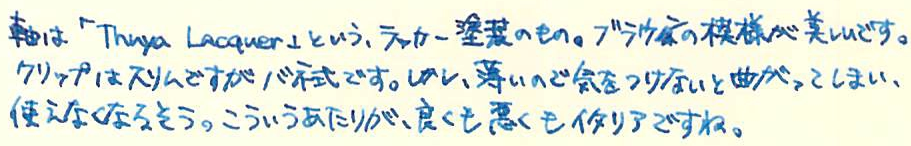 軸は「Thuya Lacquer」という、ラッカー塗装のもの。ブラウン系の模様が美しいです。
クリップはスリムですがバネ式です。しかし、薄いので気をつけないと曲がってしまい、
使えなくなるそう。こういうあたりが、良くも悪くもイタリアですね。